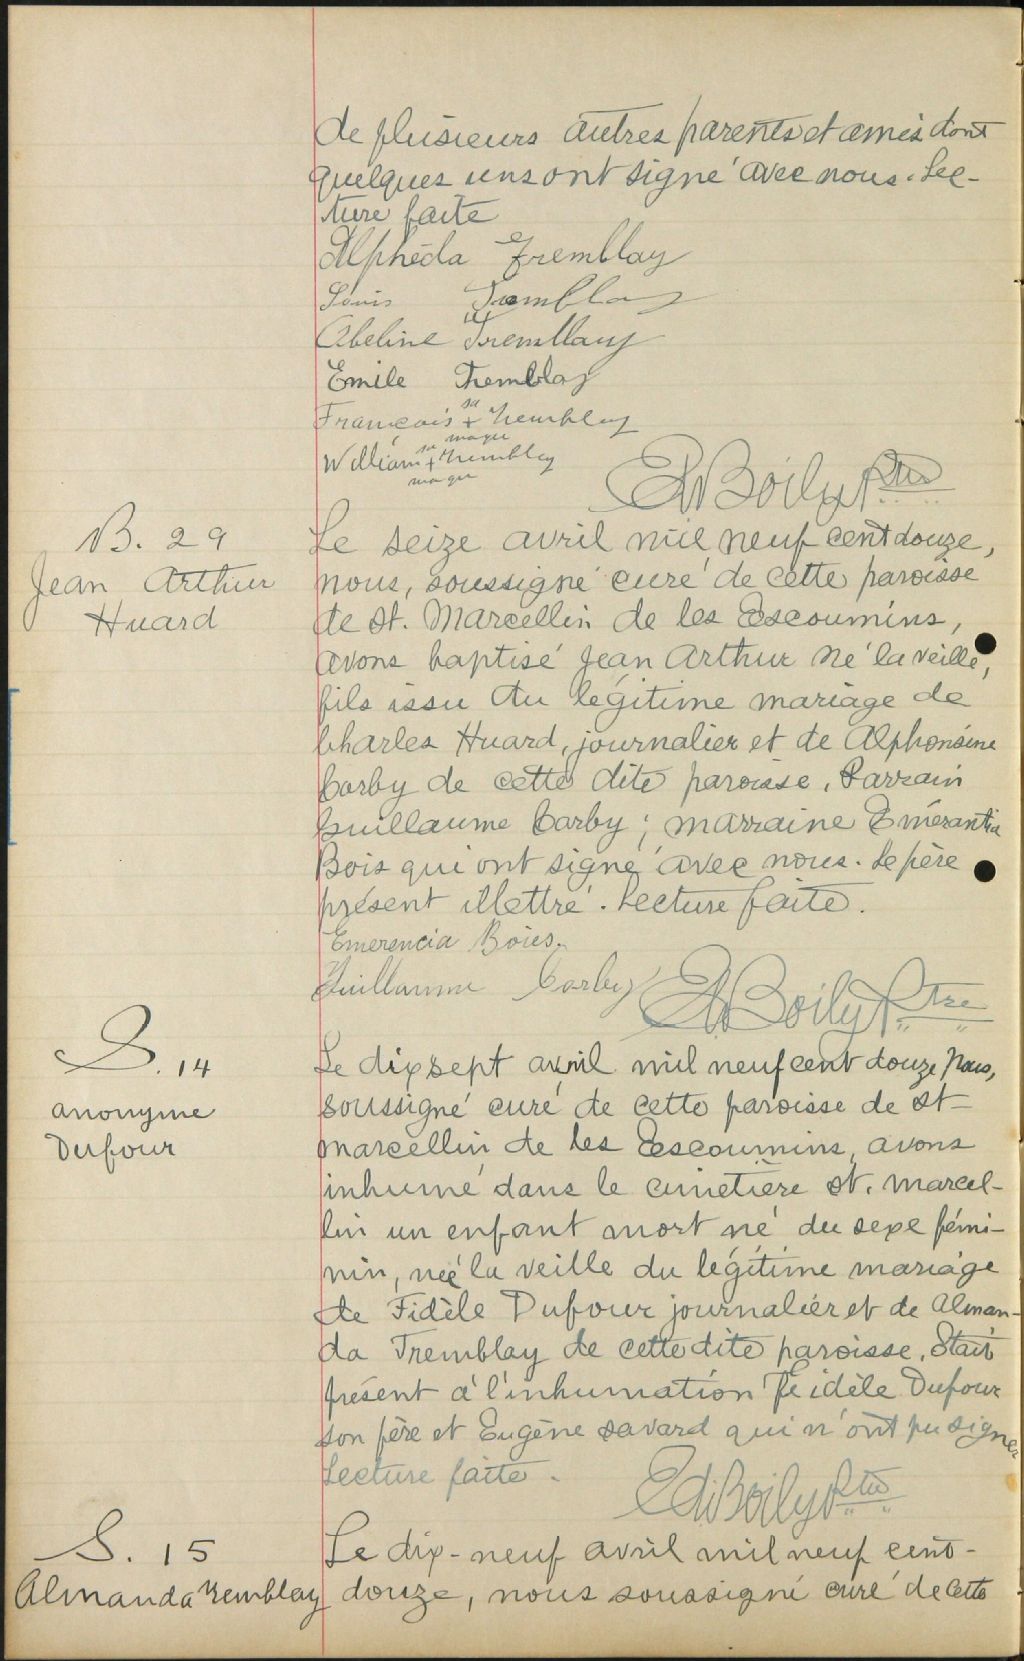 de plusieurs autres parents et amis dont
quelques uns ont signé avec nous. Lec-
ture faite
Alphéda Tremblay
Louis Tremblay
Abeline Tremblay
Emile Tremblay
François sa + marque Tremblay
William sa + marque Tremblay
Ed Boily Ptre
B. 29
Jean Arthur
Huard
Le seize avril mil neuf cent douze,
nous, soussigné curé de cette paroisse
de St. Marcellin de les Escoumins,
avons baptisé Jean Arthur né la veille,
fils issu du légitime mariage de
Charles Huard, journalier et de Alphonsine
Corby de cette dite paroisse. Parrain
Guillaume Corby; marraine Emérantia
Bois qui ont signé avec nous. Le père
présent illettré. Lecture faite.
Emerencia Boies.
Guillaume Corby
Ed Boily Ptre
S. 14
anonyme
Dufour
Le dix sept avril mil neuf cent douze, Nous,
soussigné curé de cette paroisse de St-
Marcellin de les Escoumins, avons
inhumé dans le cimetière St. Marcel-
lin un enfant mort né du sexe fémi-
nin, née la veille du légitime mariage
de Fidèle Dufour journalier et de Alman-
da Tremblay de cette dite paroisse. Etait
présent à l'inhumation Fidèle Dufour
son père et Eugène Savard qui n'ont pu signer
Lecture faite.
Ed Boily Ptre
S. 15
Almanda Tremblay
Le dix-neuf avril mil neuf cent-
douze, nous soussigné curé de cette